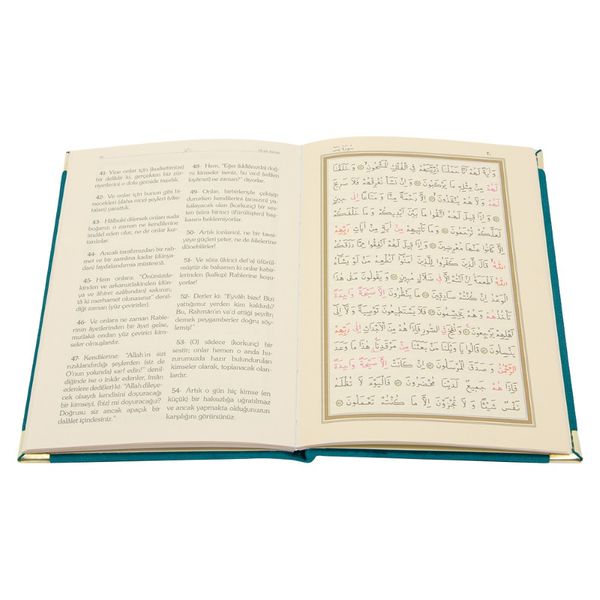 41- Yine onlar için (kudretimize) bir delildir ki, gerçekten biz zürriyetlerini o dolu gemide taşıdık.
42- Ve onlar için bunun gibi binecekleri (daha nice şeyleri) yarattık.
43- Hâlbuki dilemek olsak onları suda boğarız; o zaman ne kendilerine imdâd eden olur, ne de onlar kurtarılırlar.
44- Ancak tarafımızdan bir rahmet ve bir zamana kadar (dünyadan) faydalandırma müstesnâ.
45- Hem onlara: "Önünüzdekinden ve arkanızdakinden sakının; tâ ki merhamet olunasınız" denildiği zaman (yüz çevirirler).
46- Ve onlara ne zaman Rablerinin âyetlerinden bir âyet gelse, mutlaka ondan yüz çevirici kimseler olmuşlardır.
47- Kendilerine: "Allah'ın sizi rızıklandırdığı şeylerden (siz de O'nun yolunda) sarf edin!" denildiğinde ise o inkâr edenler, îmân edenlere dediler ki: "Allah dileyecek olsaydı kendisini doyuracağı bir kimseyi, (biz mi) doyuracağız? Doğrusu siz ancak apaçık bir dalâlet içindesiniz."
48- Hem, "Eğer (iddiânızda) doğru kimseler iseniz, bu vaad ne zaman?" diyorlar.
49- Onlar, birbirleriyle çekişip dururlarken kendilerini yakalayacak olan (korkunç) bir sesten başkasını beklemiyorlar.
50- Artık (onlar), ne bir tavsiyeye güçleri yeter, ne de âilelerine dönebilirler!
51- Ve sûra (ikinci def'a) üfürülmüştür de bakarsın ki onlar kabirlerinden (kalkıp) Rablerine koşuyorlar.
52- Derler ki: "Eyvâh bize! Bizi yattığımız yerden kim kaldırdı? Bu, Rahmân'ın va'd ettiği şeydir; demek peygamberler doğru söylemiş!"
53- (O) sâdece (korkunç) bir sestir; onlar hemen o anda huzurumuzda hazır bulundurulan kimseler olarak, toplanacak olanlardır.
54- Artık o gün hiç kimse (en küçük) bir haksızlığa uğratılmaz ve ancak yapmakta olduğunuzun karşılığını görürsünüz.
وَاٰيَةٌ لَهُمْ اَنَّا حَمَلْنَا ذُرِّيَّتَهُمْ فِي الْفُلْكِ الْمَشْحُونِ وَخَلَقْنَا
لَهُمْ مِنْ مِثْلِهِ مَا يَرْكَبُونَ وَاِنْ نَشَأْ نُغْرِقْهُمْ فَلَا صَرِيخَ
لَهُمْ وَلَا هُمْ يُنْقَذُونَ اِلَّا رَحْمَةً مِنَّا وَمَتَاعًا اِلٰى
حِينٍ وَاِذَا قِيلَ لَهُمُ اتَّقُوا مَا بَيْنَ اَيْدِيكُمْ وَمَا خَلْفَكُمْ
لَعَلَّكُمْ تُرْحَمُونَ وَمَا تَأْتِيهِمْ مِنْ اٰيَةٍ مِنْ اٰيَاتِ رَبِّهِمْ
اِلَّا كَانُوا عَنْهَا مُعْرِضِينَ وَاِذَا قِيلَ لَهُمْ اَنْفِقُوا مِمَّا رَزَقَكُمُ
اللّٰهُ قَالَ الَّذِينَ كَفَرُوا لِلَّذِينَ اٰمَنُوا اَنُطْعِمُ مَنْ لَوْ يَشَاءُ
اللّٰهُ اَطْعَمَهُ اِنْ اَنْتُمْ اِلَّا فِي ضَلَالٍ مُبِينٍ وَيَقُولُونَ مَتٰى هٰذَا
الْوَعْدُ اِنْ كُنْتُمْ صَادِقِينَ مَا يَنْظُرُونَ اِلَّا صَيْحَةً وَاحِدَةً
تَأْخُذُهُمْ وَهُمْ يَخِصِّمُونَ فَلَا يَسْتَطِيعُونَ تَوْصِيَةً وَلَا اِلٰى
اَهْلِهِمْ يَرْجِعُونَ وَنُفِخَ فِي الصُّورِ فَاِذَا هُمْ مِنَ الْاَجْدَاثِ اِلٰى رَبِّهِمْ
يَنْسِلُونَ قَالُوا يَا وَيْلَنَا مَنْ بَعَثَنَا مِنْ مَرْقَدِنَا هٰذَا مَا وَعَدَ
الرَّحْمٰنُ وَصَدَقَ الْمُرْسَلُونَ اِنْ كَانَتْ اِلَّا صَيْحَةً وَاحِدَةً
فَاِذَا هُمْ جَمِيعٌ لَدَيْنَا مُحْضَرُونَ فَالْيَوْمَ لَا تُظْلَمُ
نَفْسٌ شَيْئًا وَلَا تُجْزَوْنَ اِلَّا مَا كُنْتُمْ تَعْمَلُونَ